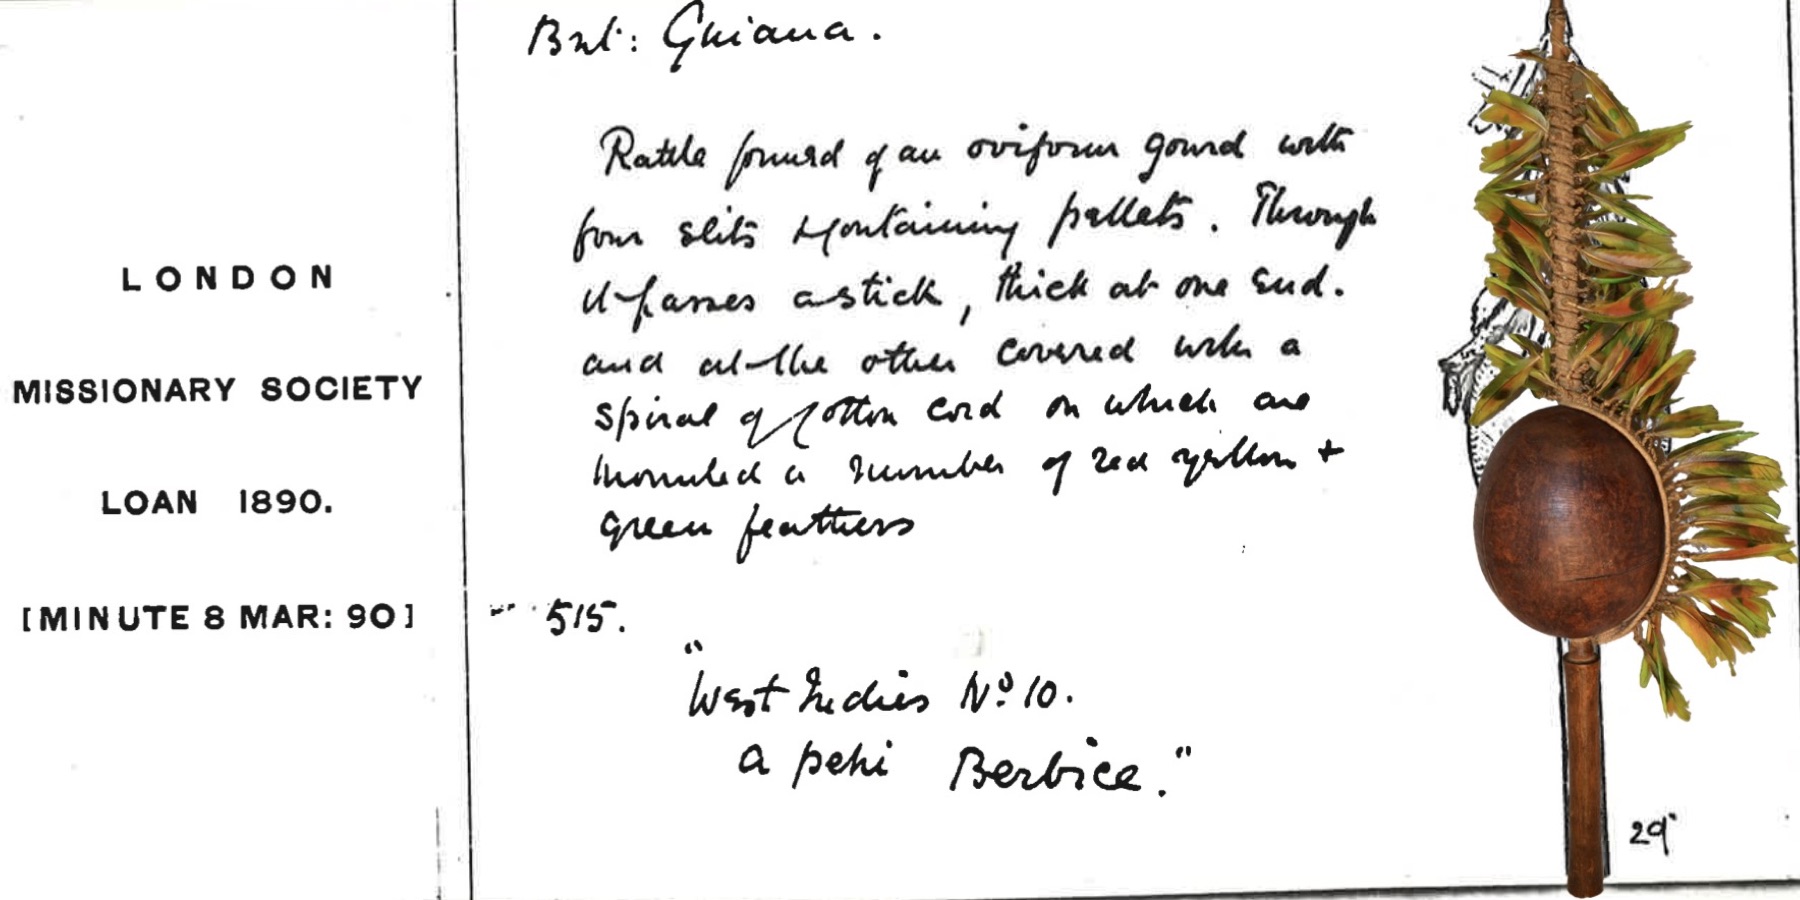 LONDON
MISSIONARY SOCIETY
LOAN 1890.
[MINUTE 8 MAR: 90]
Brit: Guiana.
Rattle formed of an oviform gourd with
four slits & containing pellets. Through
it passes a stick, thick at one end.
and at the other covered with a
spiral of cotton cord on which are
mounted a number of red yellow +
green feathers
515.
"West Indies No 10.
a peki Berbice."
29"